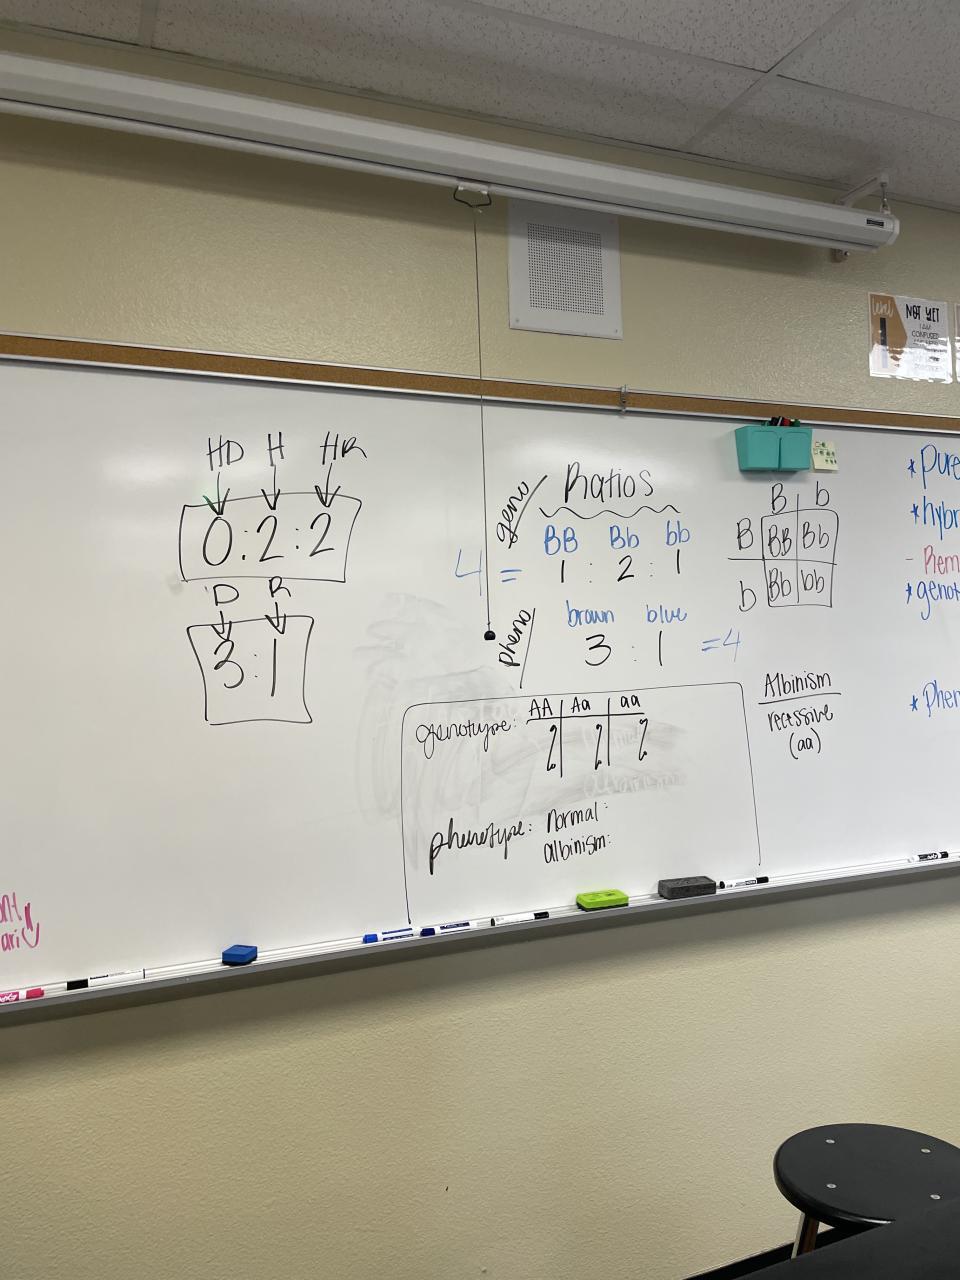 HD H HR
0:2:2
D R
3:1
Ratios
geno
BB Bb bb
4 = 1 : 2 : 1
pheno
brown blue
3 : 1 =4
B b
B BB Bb
b Bb bb
genotype: AA Aa aa
phenotype: normal:
albinism:
Albinism
recessive
(aa)
*pure
*hybr
- Rem
*genot
*Phen
level
1
NOT YET
I AM
CONFUSED